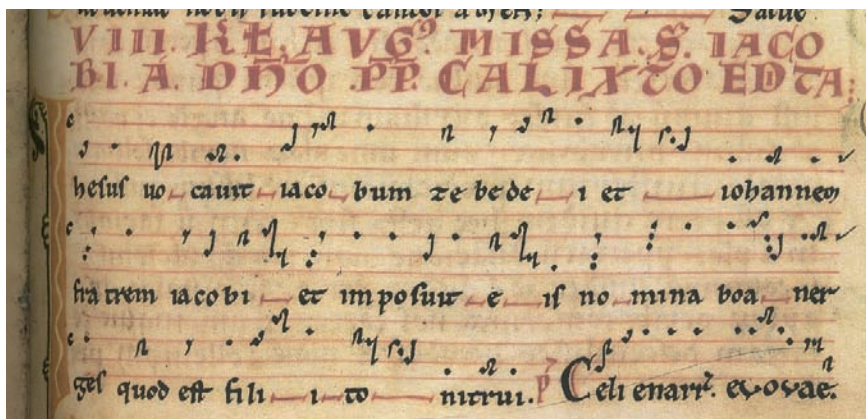 Salue
VIII. KL, AVGꝰ MISSA. S. IACO
BI. A. DNO .PP. CALIXTO EDITA:
Ihesus uocauit iacobum zebedei et iohannem
fratrem iacobi et imposuit eis nomina boaner
ges quod est filii tonitrui. p̃ Celi enarr̃. evovae.